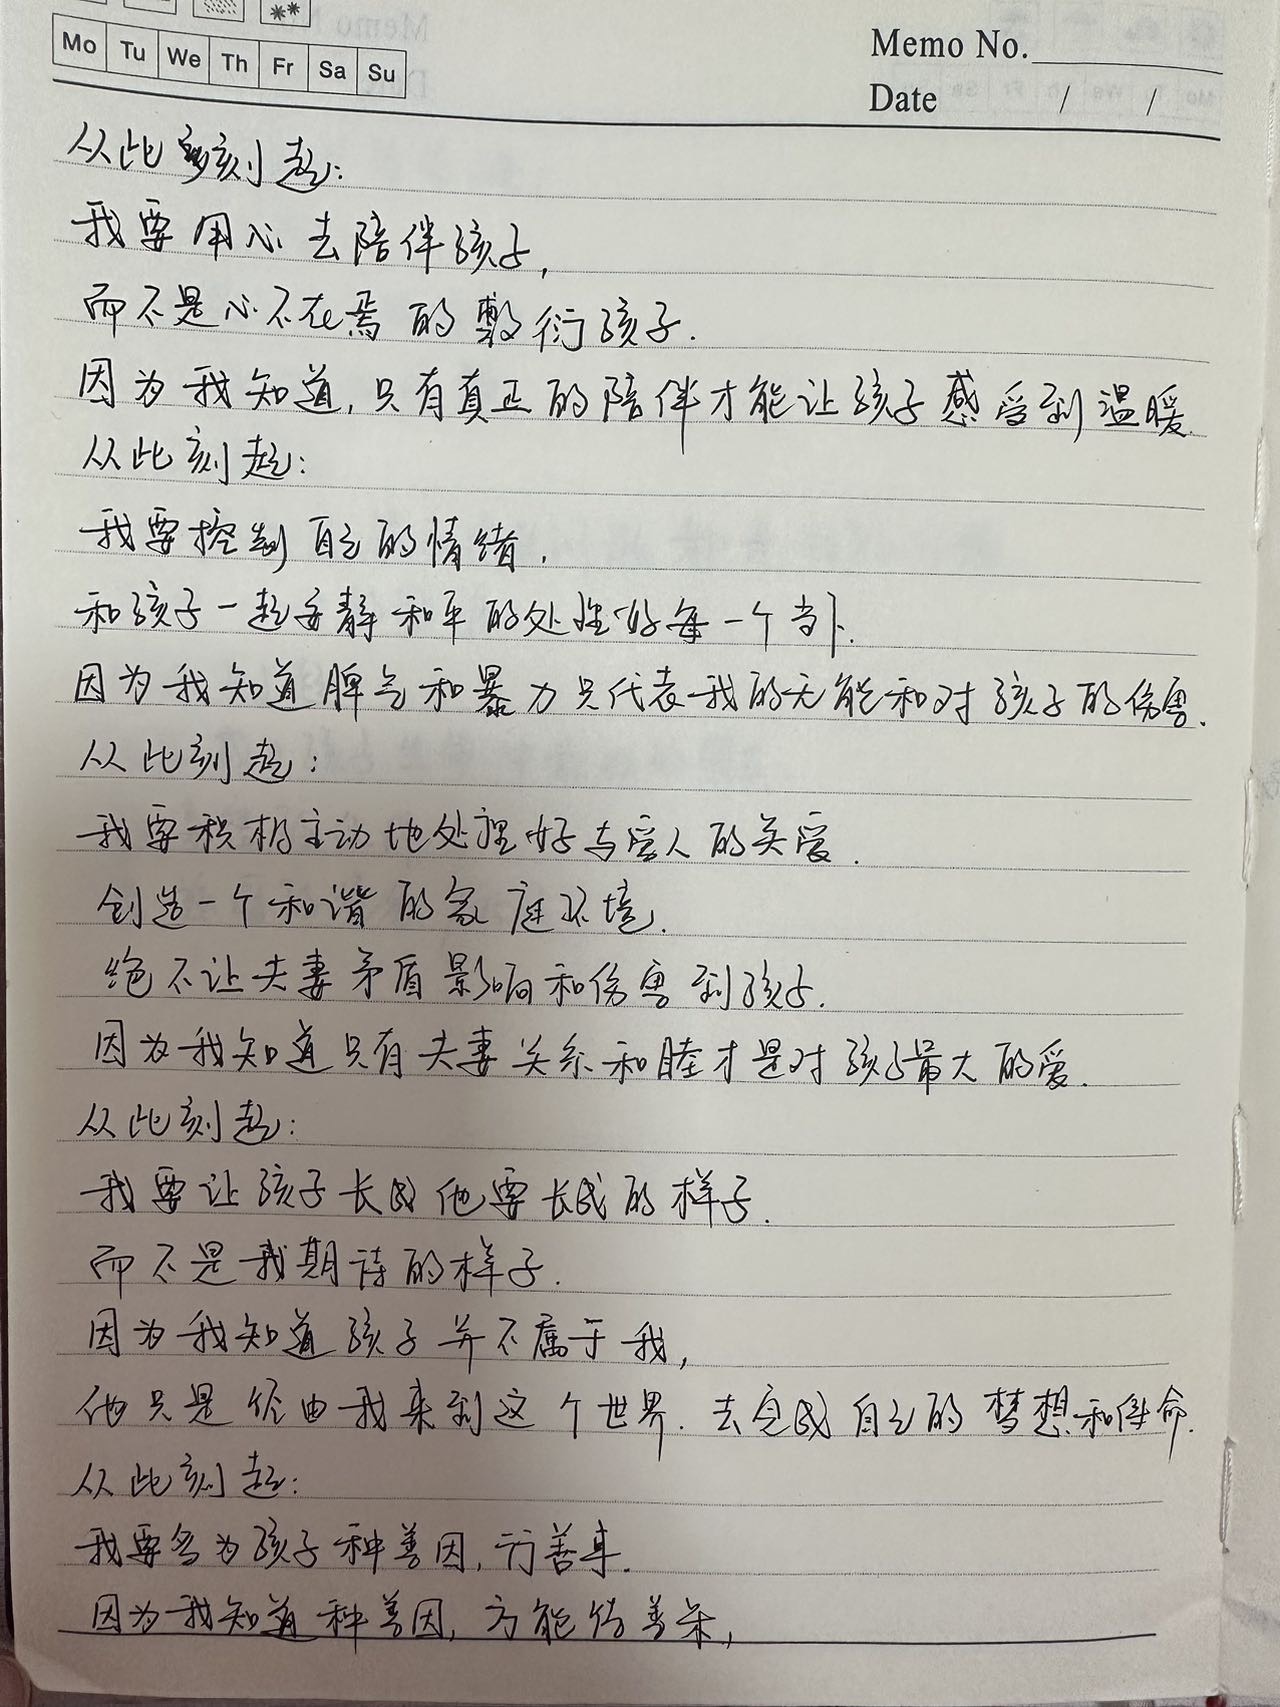 Mo Tu We Th Fr Sa Su
Memo No.
Date / /
从此刻起:
我要用心去陪伴孩子,
而不是心不在焉的敷衍孩子.
因为我知道,只有真正的陪伴才能让孩子感受到温暖.
从此刻起:
我要控制自己的情绪.
和孩子一起安静和平的处理好每一个当下.
因为我知道脾气和暴力只代表我的无能和对孩子的伤害.
从此刻起:
我要积极主动地处理好与爱人的关爱.
创造一个和谐的家庭环境.
绝不让夫妻矛盾影响和伤害到孩子.
因为我知道只有夫妻关系和睦才是对孩子最大的爱.
从此刻起:
我要让孩子长成他要长成的样子.
而不是我期待的样子.
因为我知道孩子并不属于我,
他只是经由我来到这个世界.去完成自己的梦想和使命.
从此刻起:
我要多为孩子种善因,行善事.
因为我知道种善因,方能结善果,